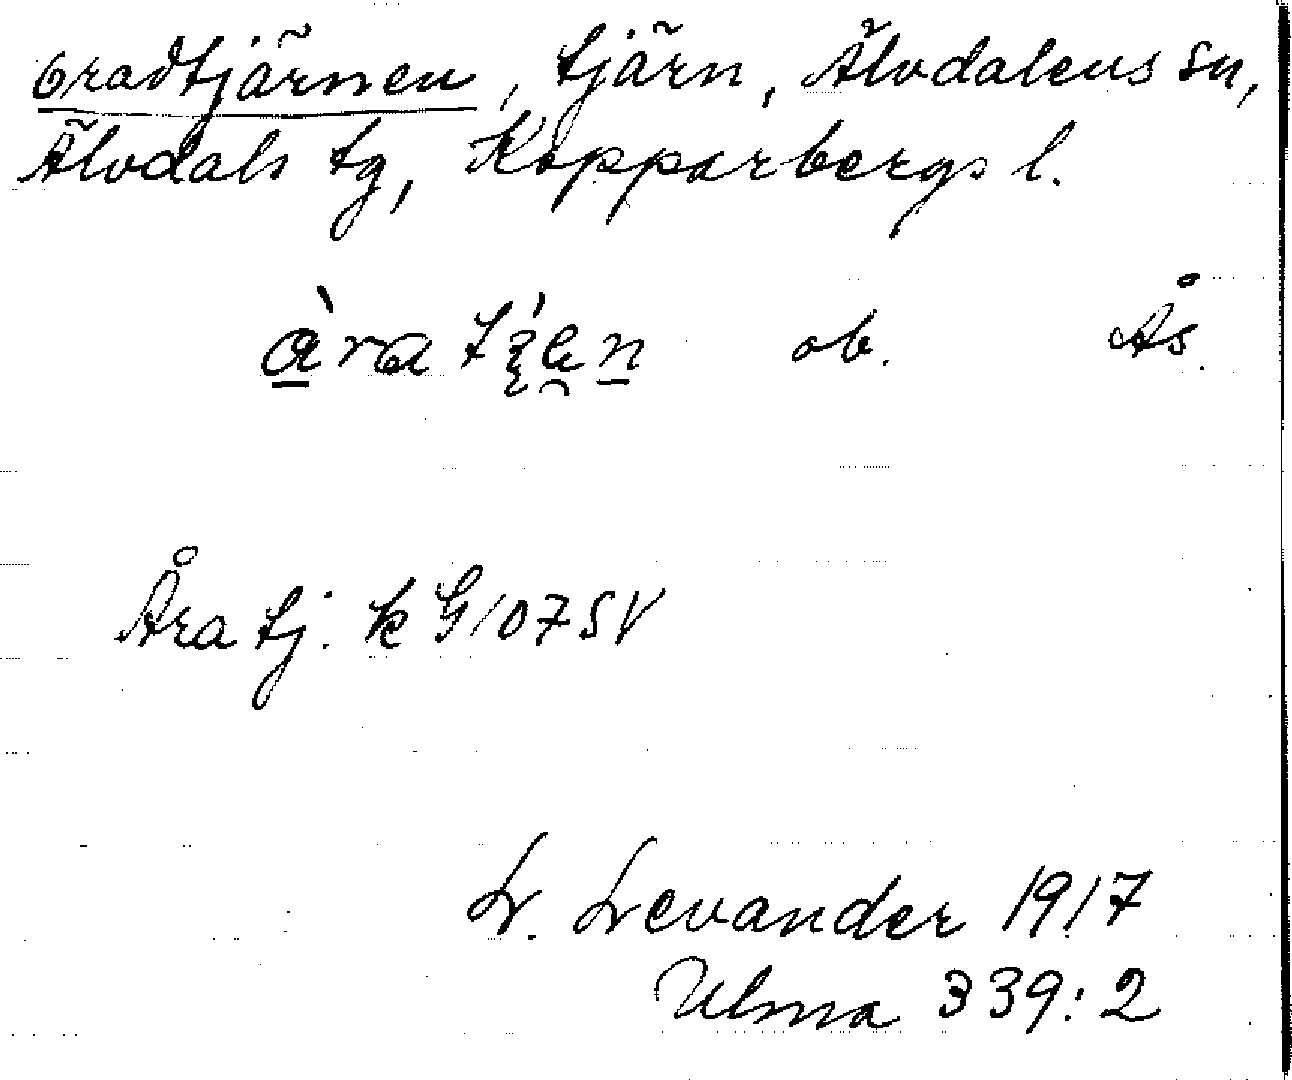 Oradtjärnen, tjärn, Älvdalens sn,
Älvdals tg, Kopparbergs l.
ob. Ås.
Åra tj. k G 107 SV
L. Levander 1917
Ulma 339:2